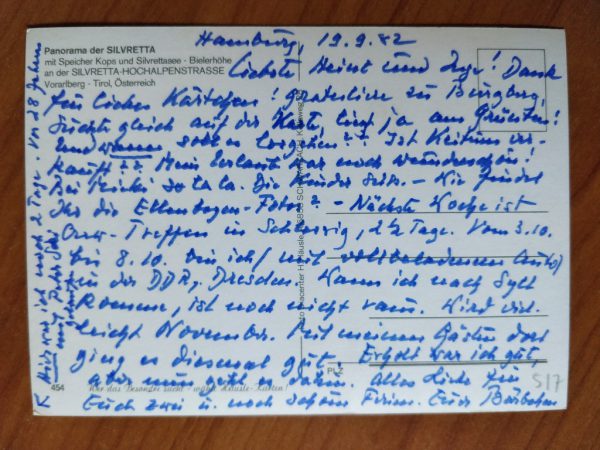 Panorama der SILVRETTA
mit Speicher Kops und Silvrettasee - Bielerhöhe
an der SILVRETTA-HOCHALPENSTRASSE
Vorarlberg - Tirol, Österreich
Hamburg, 19.9.82
Liebste Heinst und Inge! Dank
für liebes Kärtchen! gratuliere zu
suchte gleich auf der Karte, liegt ja am Grünten!
und wann soll es losgehen?? Ist Keitum ver-
kauft?? Mein Urlaub war noch wunderschön!
Bei so la la. Die Kinder - Wie findet
Ihr die Ellenbogen-Fotos? - Nächste Woche ist
Treffen in 2½ Tage. Vom 3.10.
bis 8.10. bin ich/ mit vollbeladenem Auto/
in der DDR, Dresden. Wann ich nach Sylt
komme, ist noch nicht raus. Wird viel-
leicht November. Mit meinen Gästen dort
ging es diesmal gut. Erholt war ich gut,
aber nun geht es Alles Liebe für
Euch zwei u. noch schöne Ferien. Eure
war ich noch 2 Tage. Vor 28 Jahren
454
Wer das Besondere sucht - wählt Häusle-Karten!
PLZ
S17